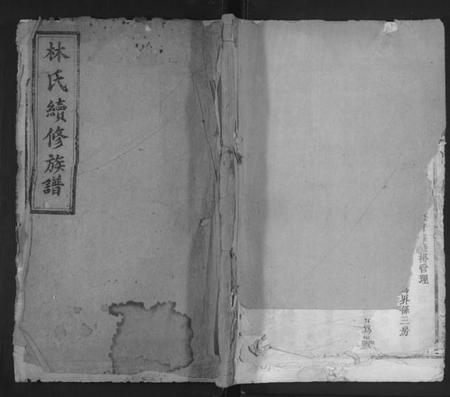 林氏續修族譜
管理
昇係三房